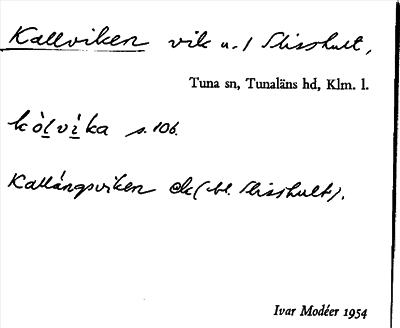 Kallviken vik u. / Slisshult,
Tuna sn, Tunaläns hd, Klm. l.
kòlvìka s. 106.
Kallångsviken ek (bl. Slisshult).
Ivar Modéer 1954